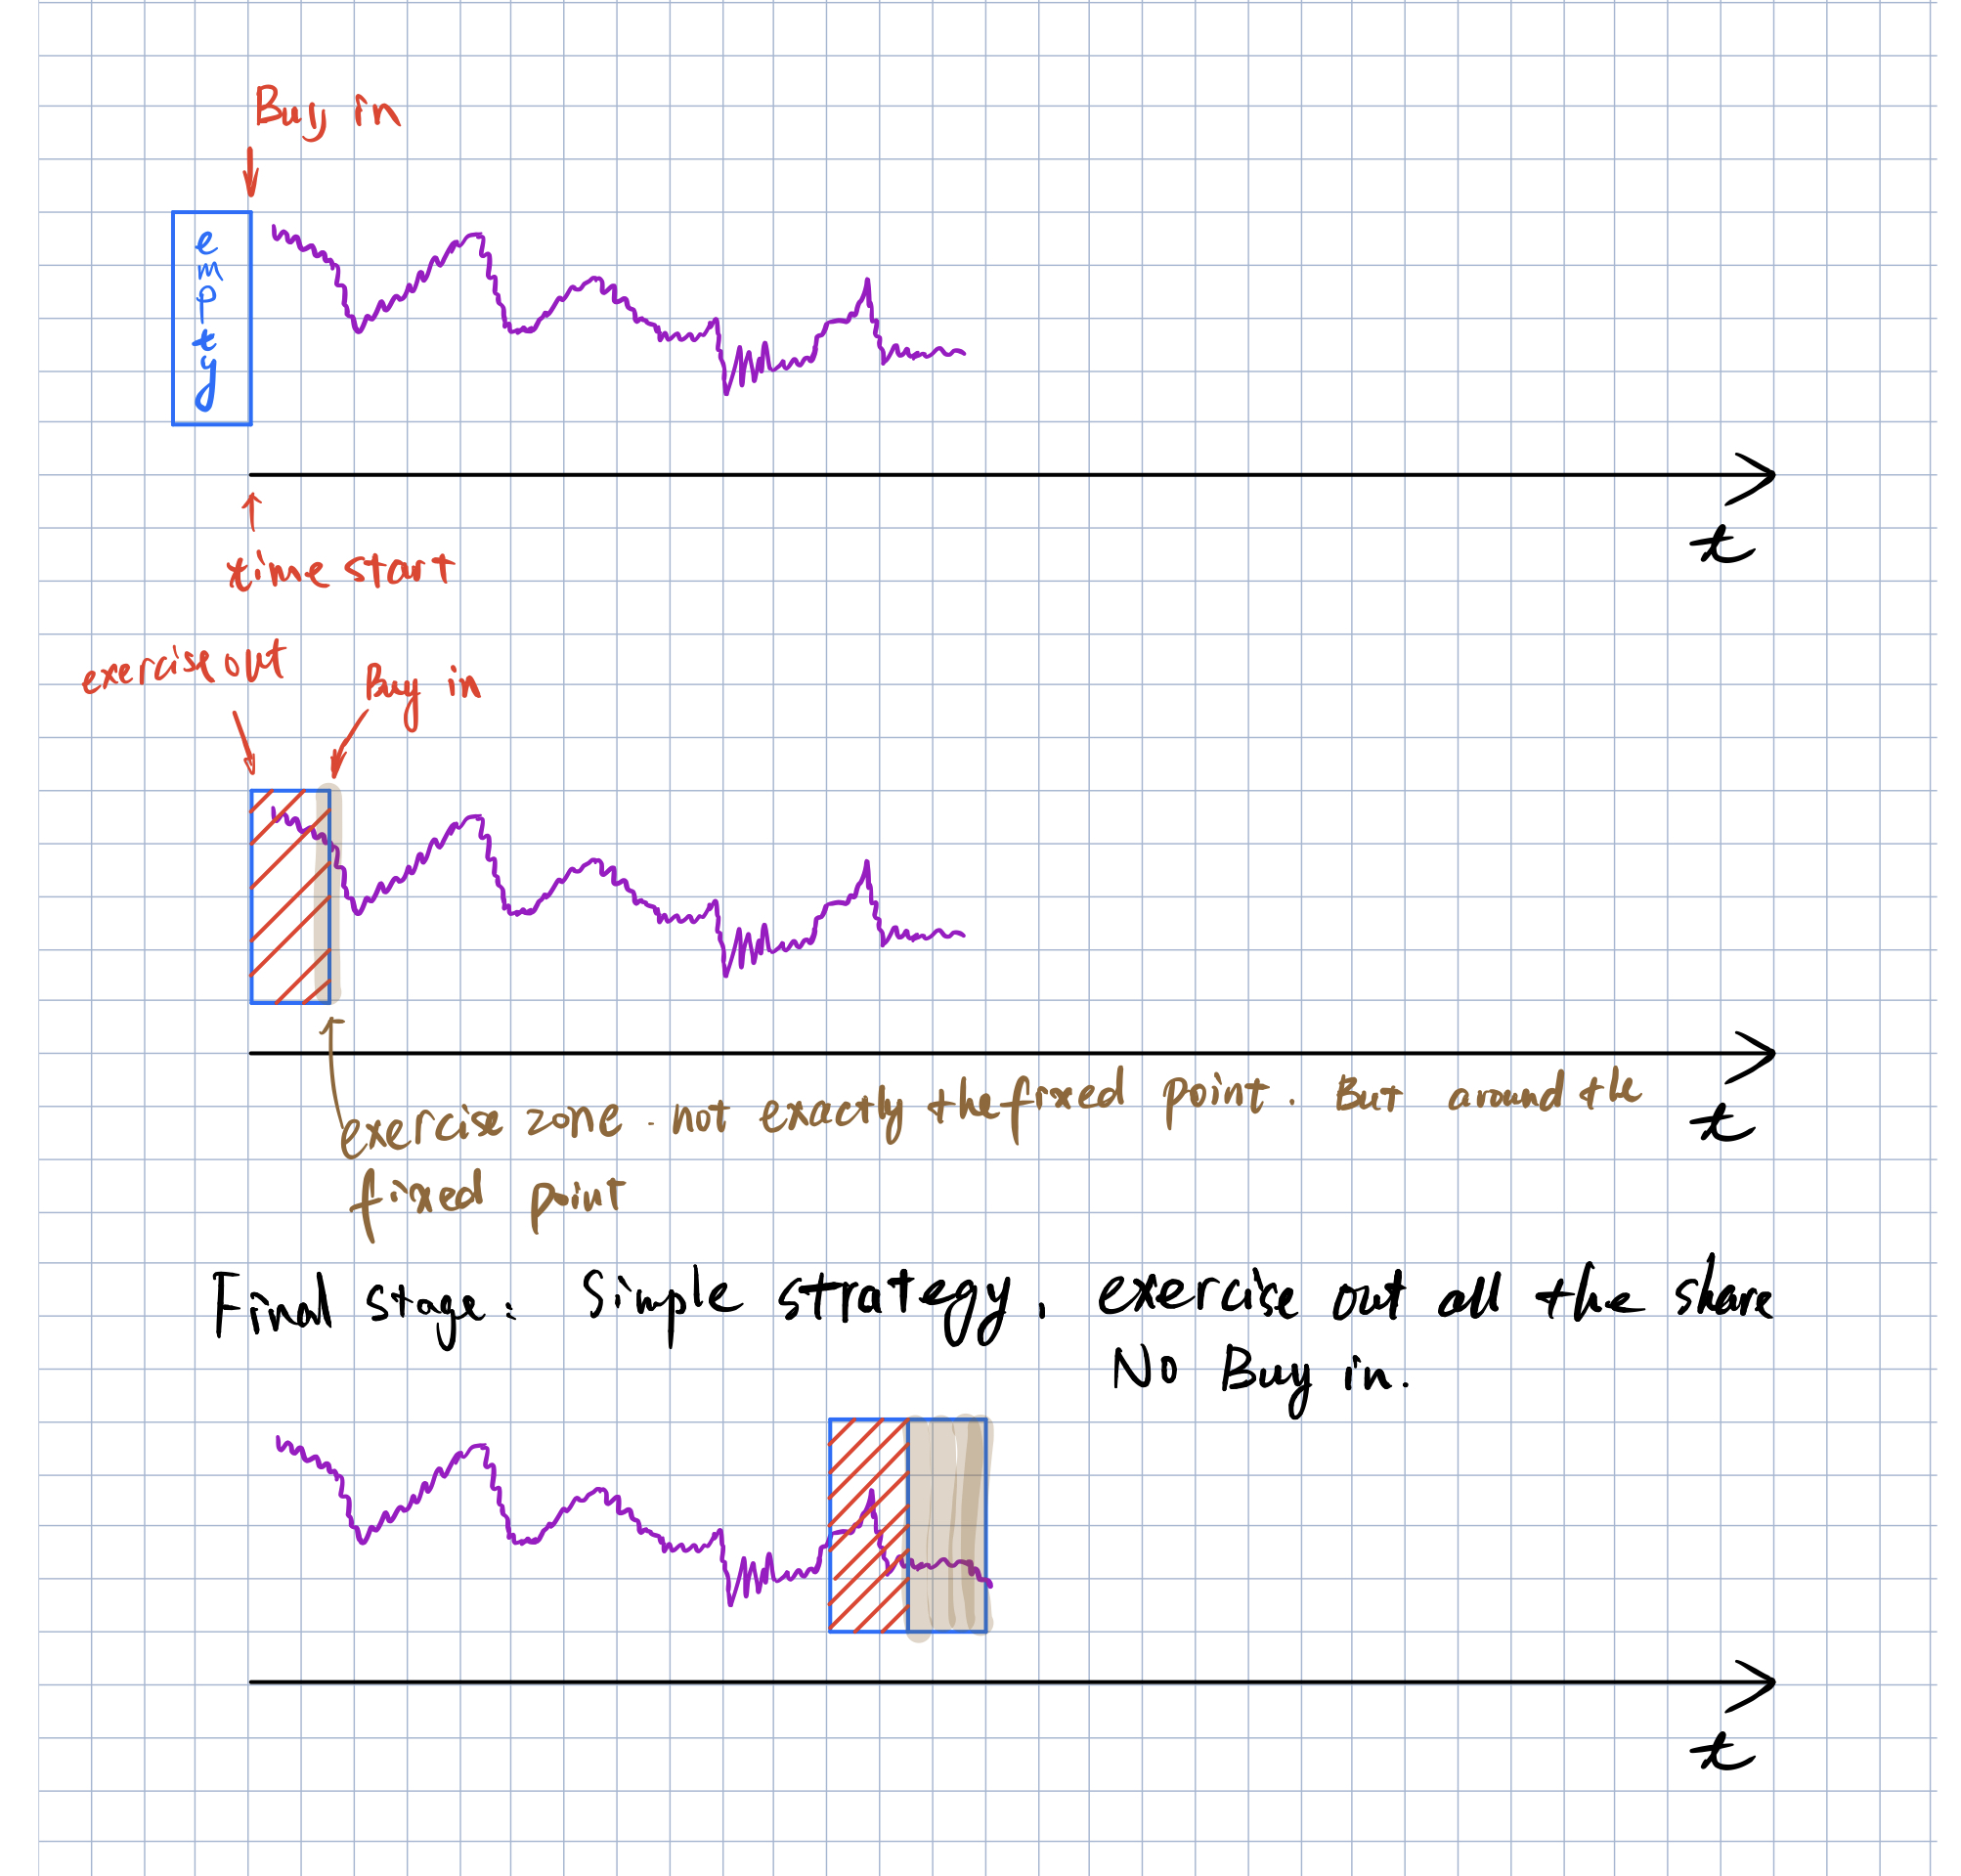 Buy in
empty
t
time start
exercise out
Buy in
exercise zone. not exactly the fixed point. But around the
t
fixed point
Final stage: Simple strategy. exercise out all the share
No Buy in.
t